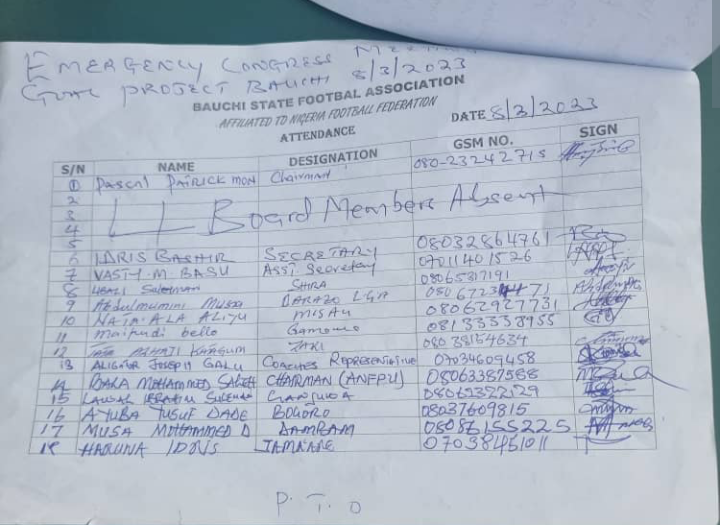 EMERGENCY CONGRESS MEETING
GOAL PROJECT BAUCHI 8/3/2023
BAUCHI STATE FOOTBAL ASSOCIATION
AFFILIATED TO NIGERIA FOOTBALL FEDERATION
ATTENDANCE DATE 8/3/2023
S/N NAME DESIGNATION GSM NO. SIGN
1 Pascal PATRICK MON Chairman 080-23242715
2
3 Board Members Absent
4
5
6 IDRIS BASHIR SECRETARY 08032864761
7 VASTY M. BASU Asst Secretary 07011401526
8 SHIRA 08065817191
9 Abdulmumini Musa DARAZO LGA
10 NATA'ALA ALIYU MISAU 08062927731
11 bello Gamawa 08133353955
12 ZAKI 08038154634
13 JOSEPH GALU COACHES Representative 07034609458
14 MOHAMMED SALEH CHAIRMAN (ANFPU) 08063387588
15 LAWAL GANJUWA
16 AYUBA YUSUF DADE BOGORO 08037609815
17 MUSA MOHAMMED D DAMBAM 08086155225
18 HARUNA IDRIS JAMA'ARE 07038451011
P. T. O